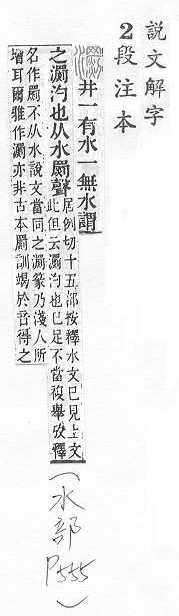 説文解字
2段注本
瀱 井一有水一無水謂
之瀱汋也从水罽聲
居例切十五部按釋水文已見上文
此但云瀱汋也已足不當複舉攷釋
名作罽不从水說文當同之瀱篆乃淺人所
增耳爾雅作瀱亦非古本罽訓竭於音得之
(水部
P555)